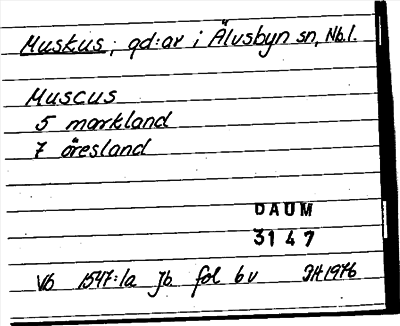 Muskus, gd:ar i Älvsbyn sn, Nb.l.
Muscus
5 markland
7 öresland
DAUM
3147
Vb 1547:1a Jb fol 6v JH 1976